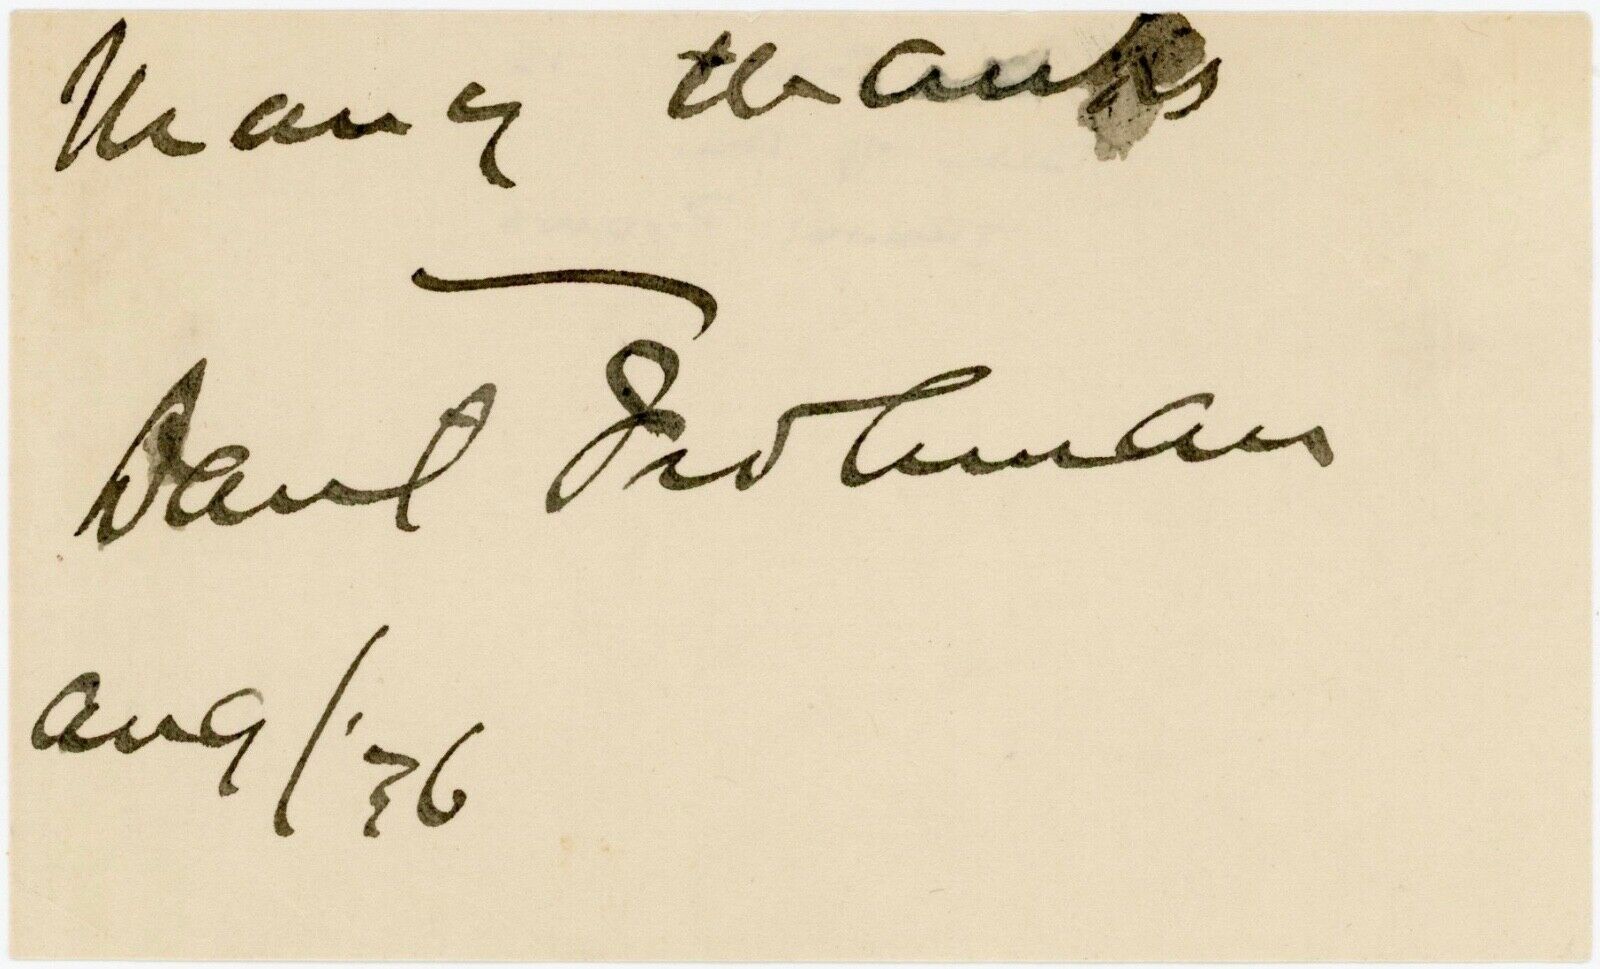 Many thanks
Danl Frohman
Aug/'36